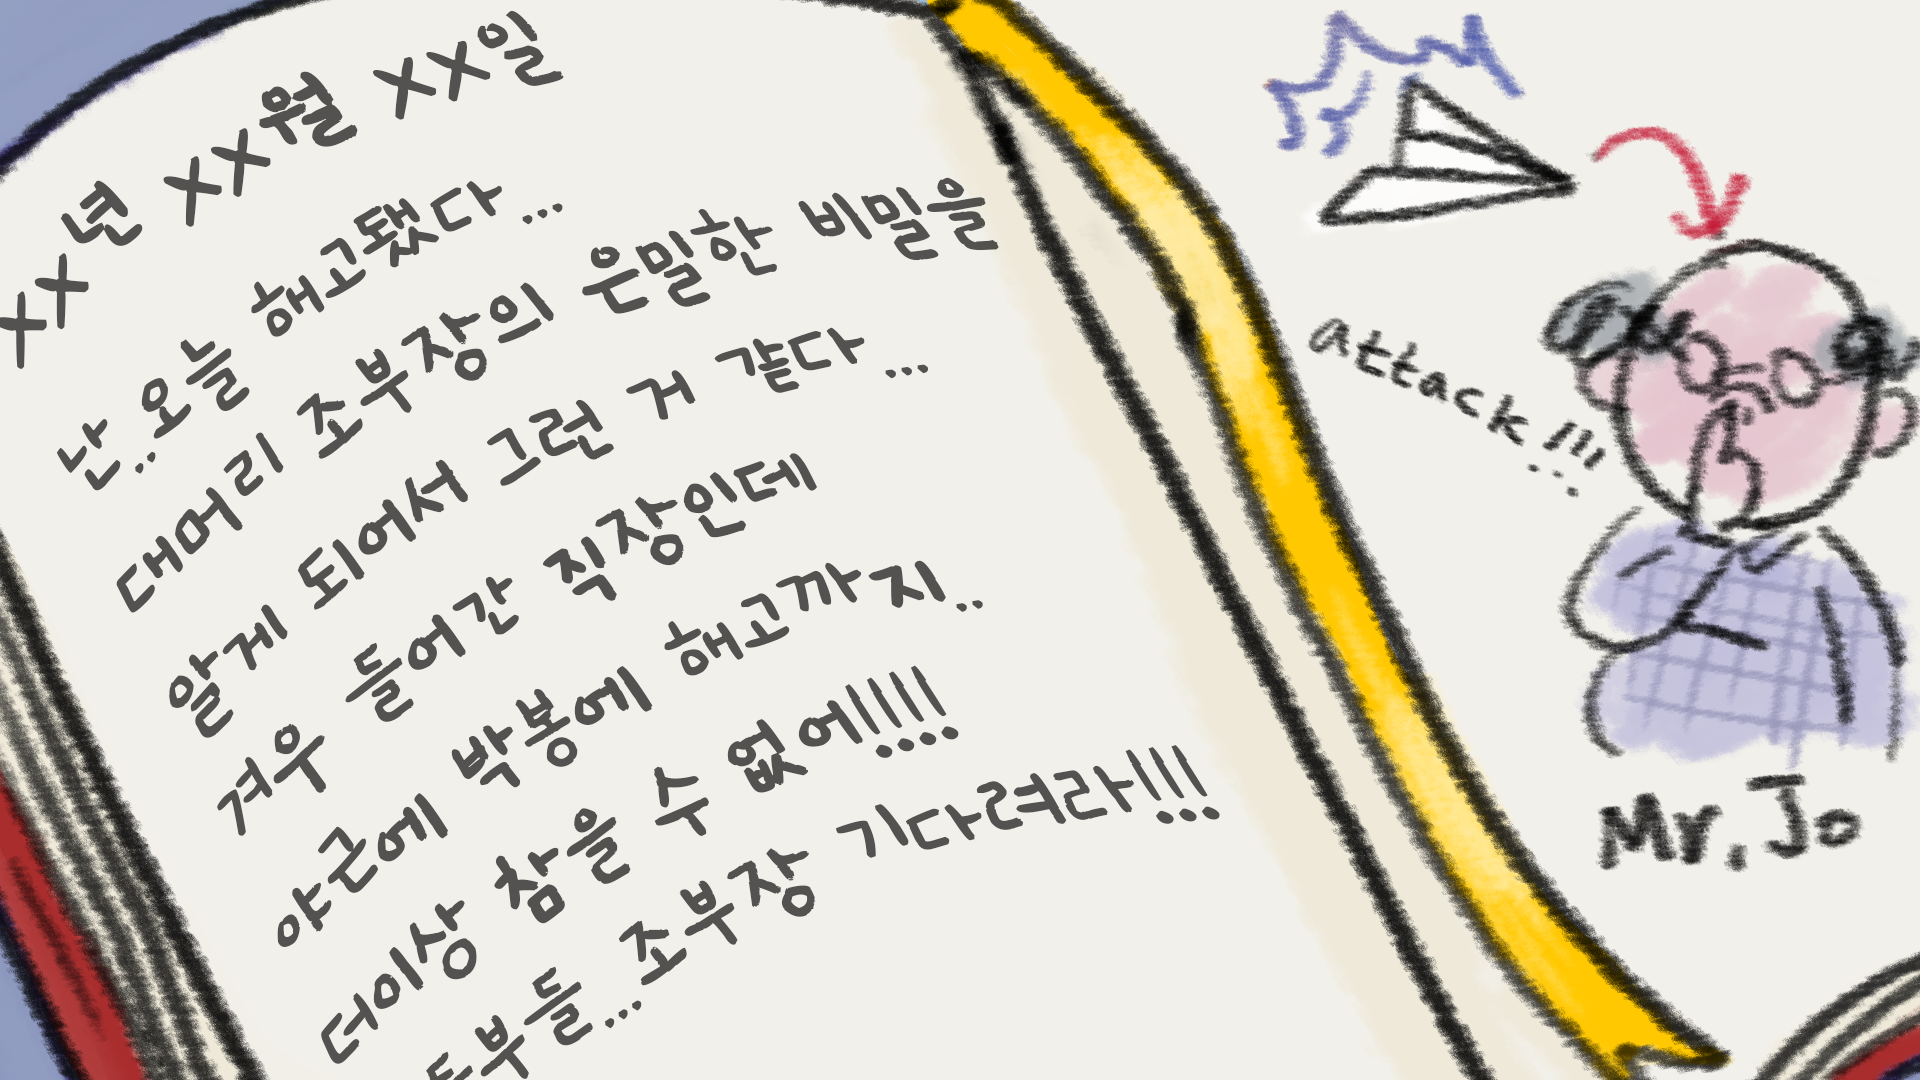 xx년 xx월 xx일
난..오늘 해고됐다...
대머리 조부장의 은밀한 비밀을
알게 되어서 그런 거 같다...
겨우 들어간 직장인데
야근에 박봉에 해고까지..
더이상 참을 수 없어!!!!
조부장 기다려라!!!
attack!!!...
Mr.Jo